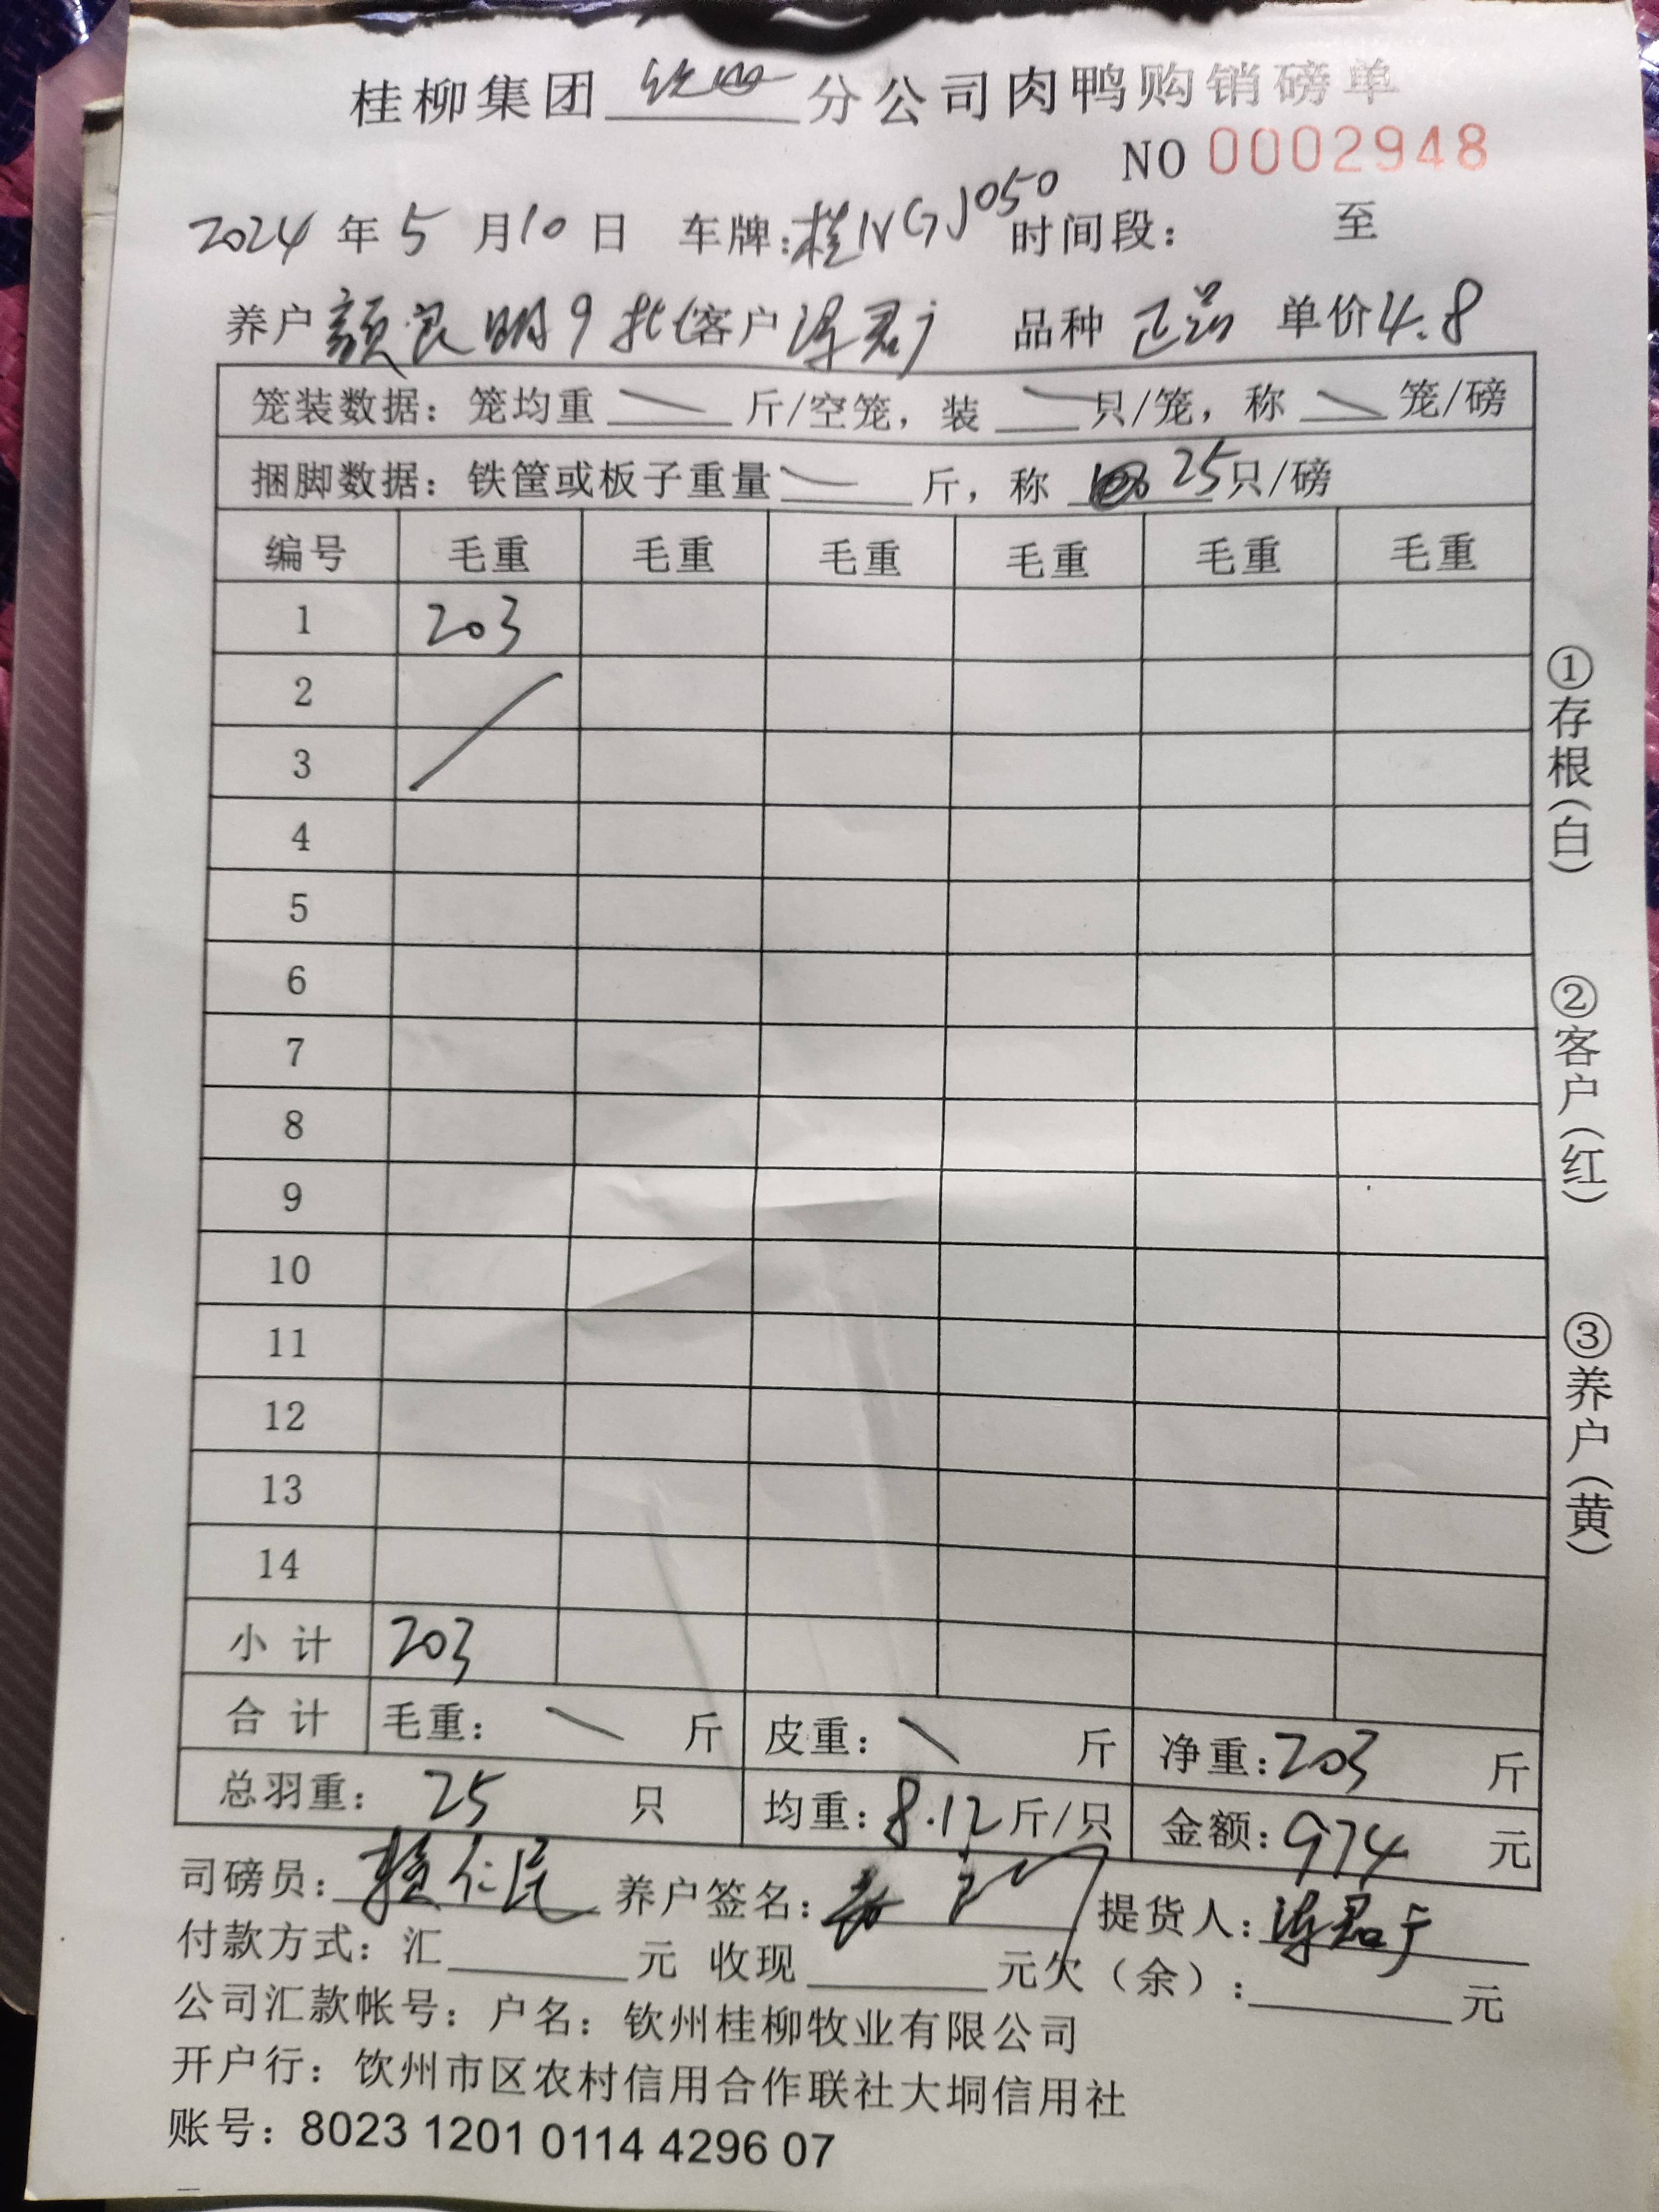 桂柳集团 钦州 分公司肉鸭购销磅单
NO 0002948
2024 年 5 月 10 日 车牌: 桂NGJ050 时间段: 至
养户 颜良明9批 客户 陈君广 品种 正品 单价 4.8
笼装数据: 笼均重 \ 斤/空笼, 装 \ 只/笼, 称 \ 笼/磅
捆脚数据: 铁筐或板子重量 \ 斤, 称 25只/磅
编号 毛重 毛重 毛重 毛重 毛重 毛重
1 203
2
3 /
4
5
6
7
8
9
10
11
12
13
14
小 计 203
合 计 毛重: \ 斤 皮重: \ 斤 净重: 203 斤
总羽重: 25 只 均重: 8.12 斤/只 金额: 974 元
司磅员: 仁民 养户签名: 提货人: 陈君广
付款方式: 汇 元 收现 元欠(余): 元
公司汇款帐号: 户名: 钦州桂柳牧业有限公司
开户行: 钦州市区农村信用合作联社大垌信用社
账号: 8023 1201 0114 4296 07
①存根(白)
②客户(红)
③养户(黄)